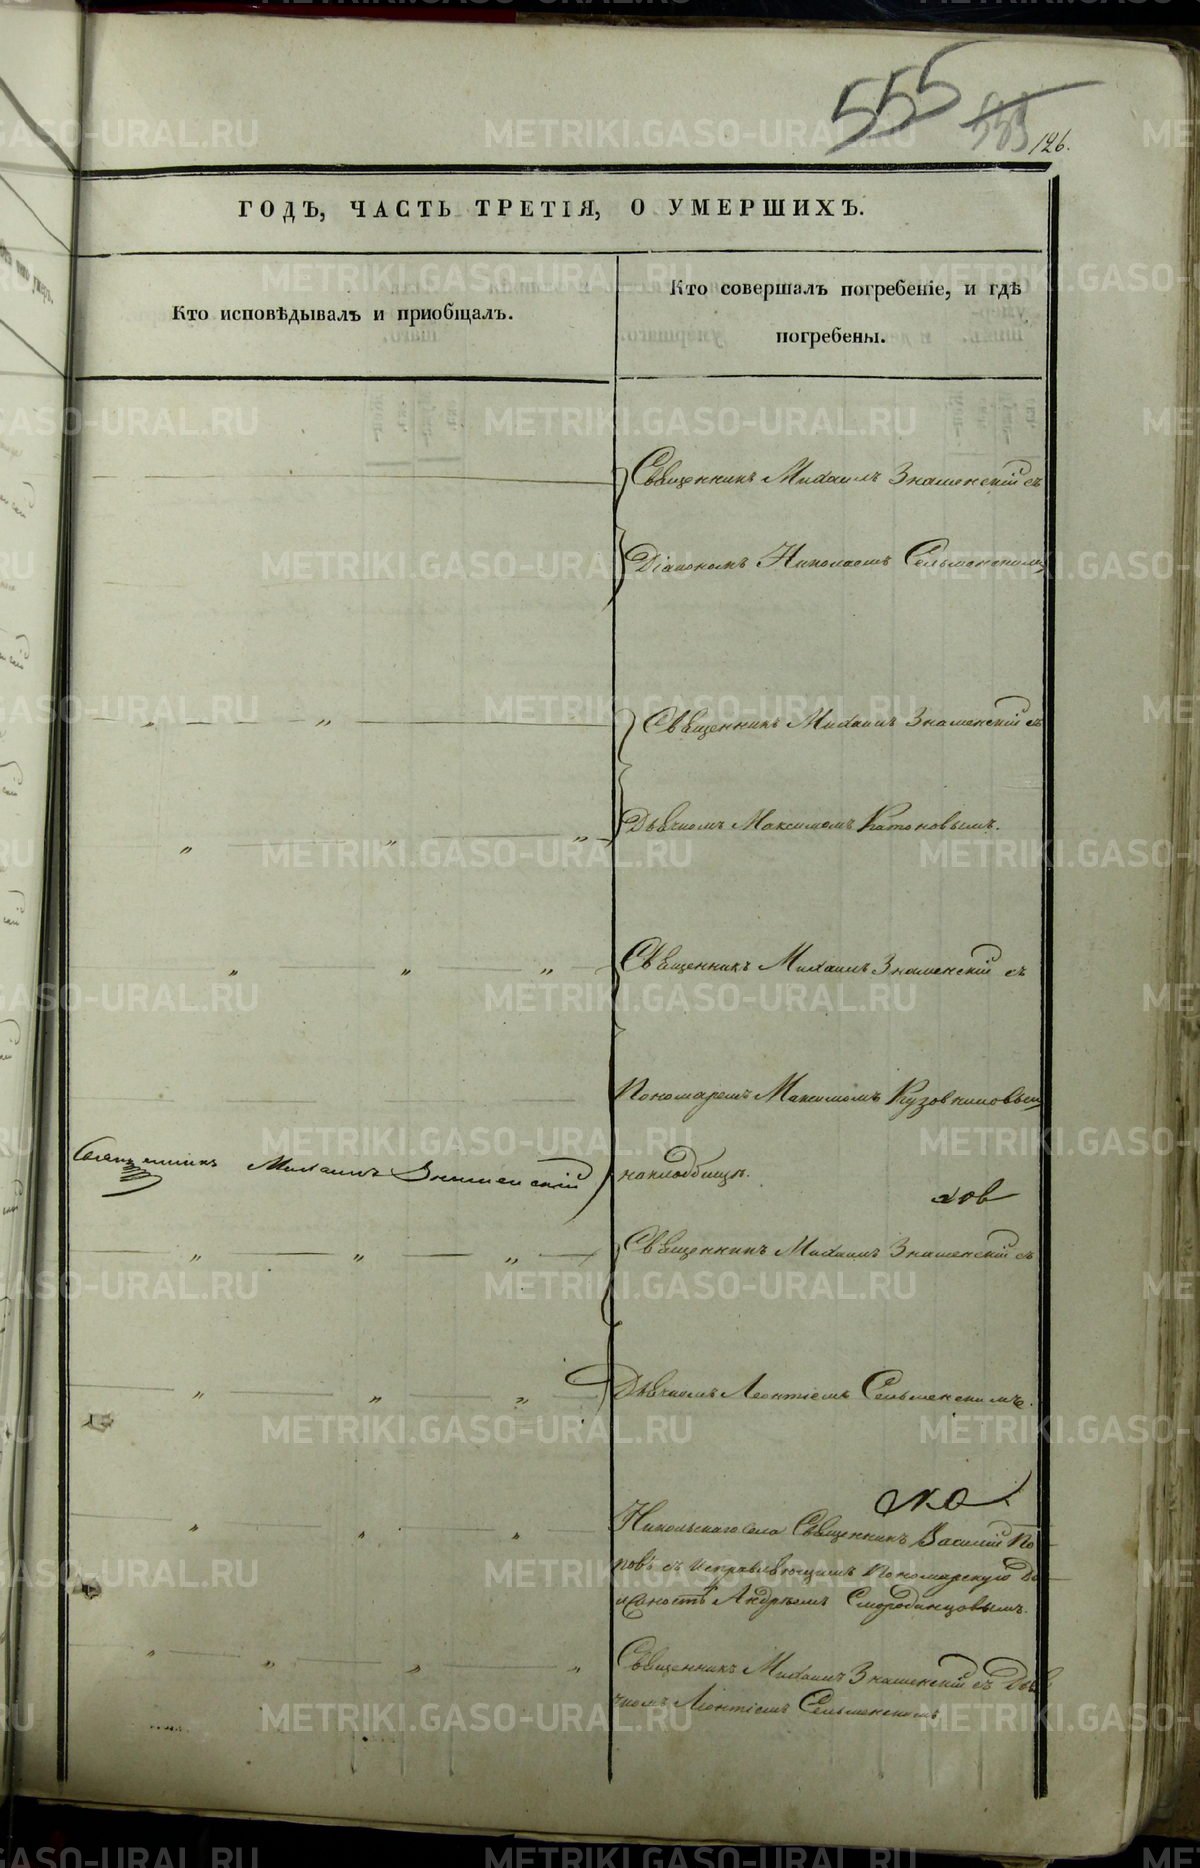 555 553
126.
ГОДЪ, ЧАСТЬ ТРЕТІЯ, О УМЕРШИХЪ.
Кто исповѣдывалъ и приобщалъ.
Кто совершалъ погребеніе, и гдѣ
погребены.
Священникъ Михаилъ Знаменскій съ
Діакономъ Николаемъ Сельменскимъ
Священникъ Михаилъ Знаменскій съ
Дьячкомъ Максимомъ Катоновымъ.
Священникъ Михаилъ Знаменскій съ
Пономаремъ Максимомъ Кузовниковым
на кладбищѣ.
Священникъ Михаилъ Знаменскій
хов
Священникъ Михаилъ Знаменскій съ
Дьячкомъ Леонтіемъ Сельменскимъ.
ка
Никольскаго села Священникъ Василій По
повъ съ исправляющимъ Пономарскую До
лжность Андрѣемъ Смородинцовымъ.
Священникъ Михаилъ Знаменскій съ Дья
чкомъ Леонтіемъ Сельменскимъ
METRIKI.GASO-URAL.RU